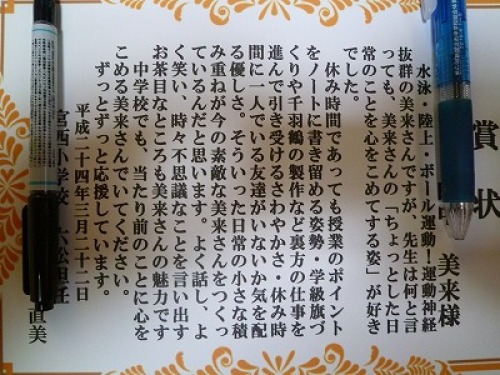 賞状
美来様
水泳・陸上・ボール運動！運動神経
抜群の美来さんですが、先生は何と言
っても、美来さんの「ちょっとした日
常のことを心をこめてする姿」が好き
でした。
休み時間であっても授業のポイント
をノートに書き留める姿勢・学級旗づ
くりや千羽鶴の製作など裏方の仕事を
進んで引き受けるさわやかさ・休み時
間に一人でいる友達がいないか気を配
る優しさ。そういった日常の小さな積
み重ねが今の素敵な美来さんをつくっ
ているんだと思います。よく話し、よ
く笑い、時々不思議なことを言い出す
お茶目なところも美来さんの魅力です
中学校でも、当たり前のことに心を
こめる美来さんでいてください。
ずっとずっと応援しています。
平成二十四年三月二十二日
宮西小学校 六松担任
直美